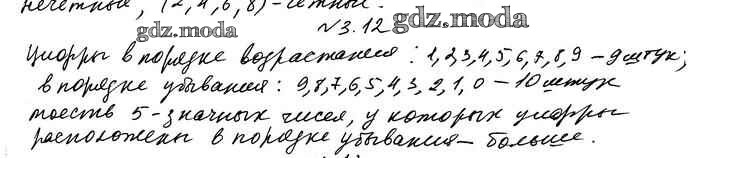 нечётные, (2,4,6,8)-чётные.
gdz.moda
№3.12 gdz.moda
Цифры в порядке возрастания: 1,2,3,4,5,6,7,8,9 – 9 штук;
в порядке убывания: 9,8,7,6,5,4,3,2,1,0 – 10 штук
тоесть 5-значных чисел, у которых цифры
расположены в порядке убывания – больше.